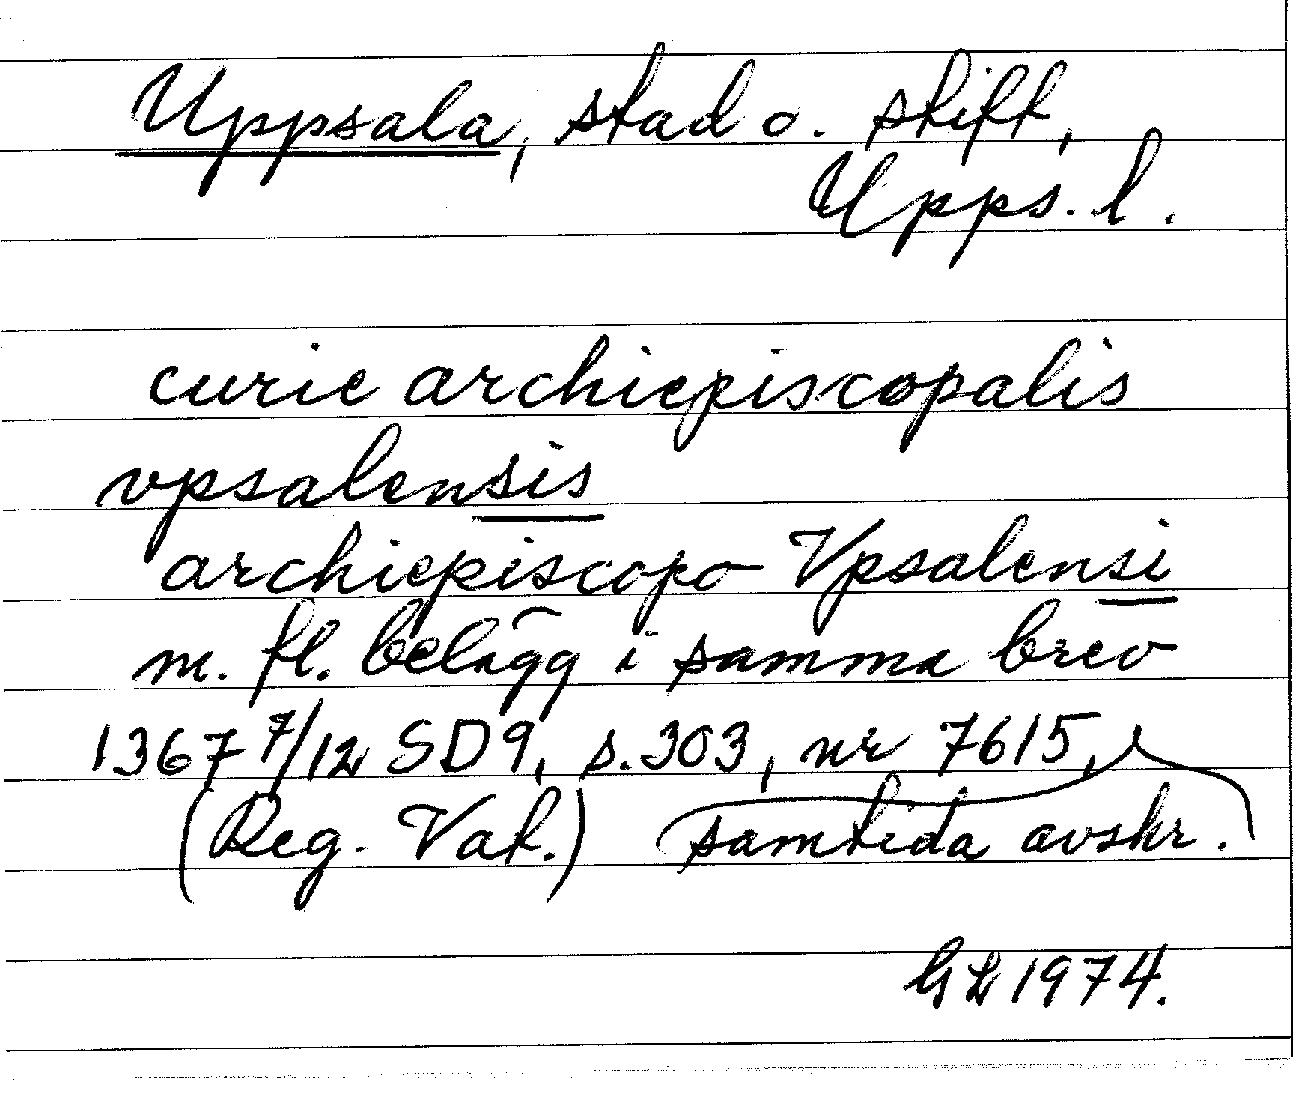 Uppsala, stad o. stift,
Upps. l.
curie archiepiscopalis
vpsalensis
archiepiscopo Vpsalensi
m. fl. belägg i samma brev
1367 7/12 SD9, s. 303, nr 7615,
(Reg. Vat.) samtida avskr.
1974.